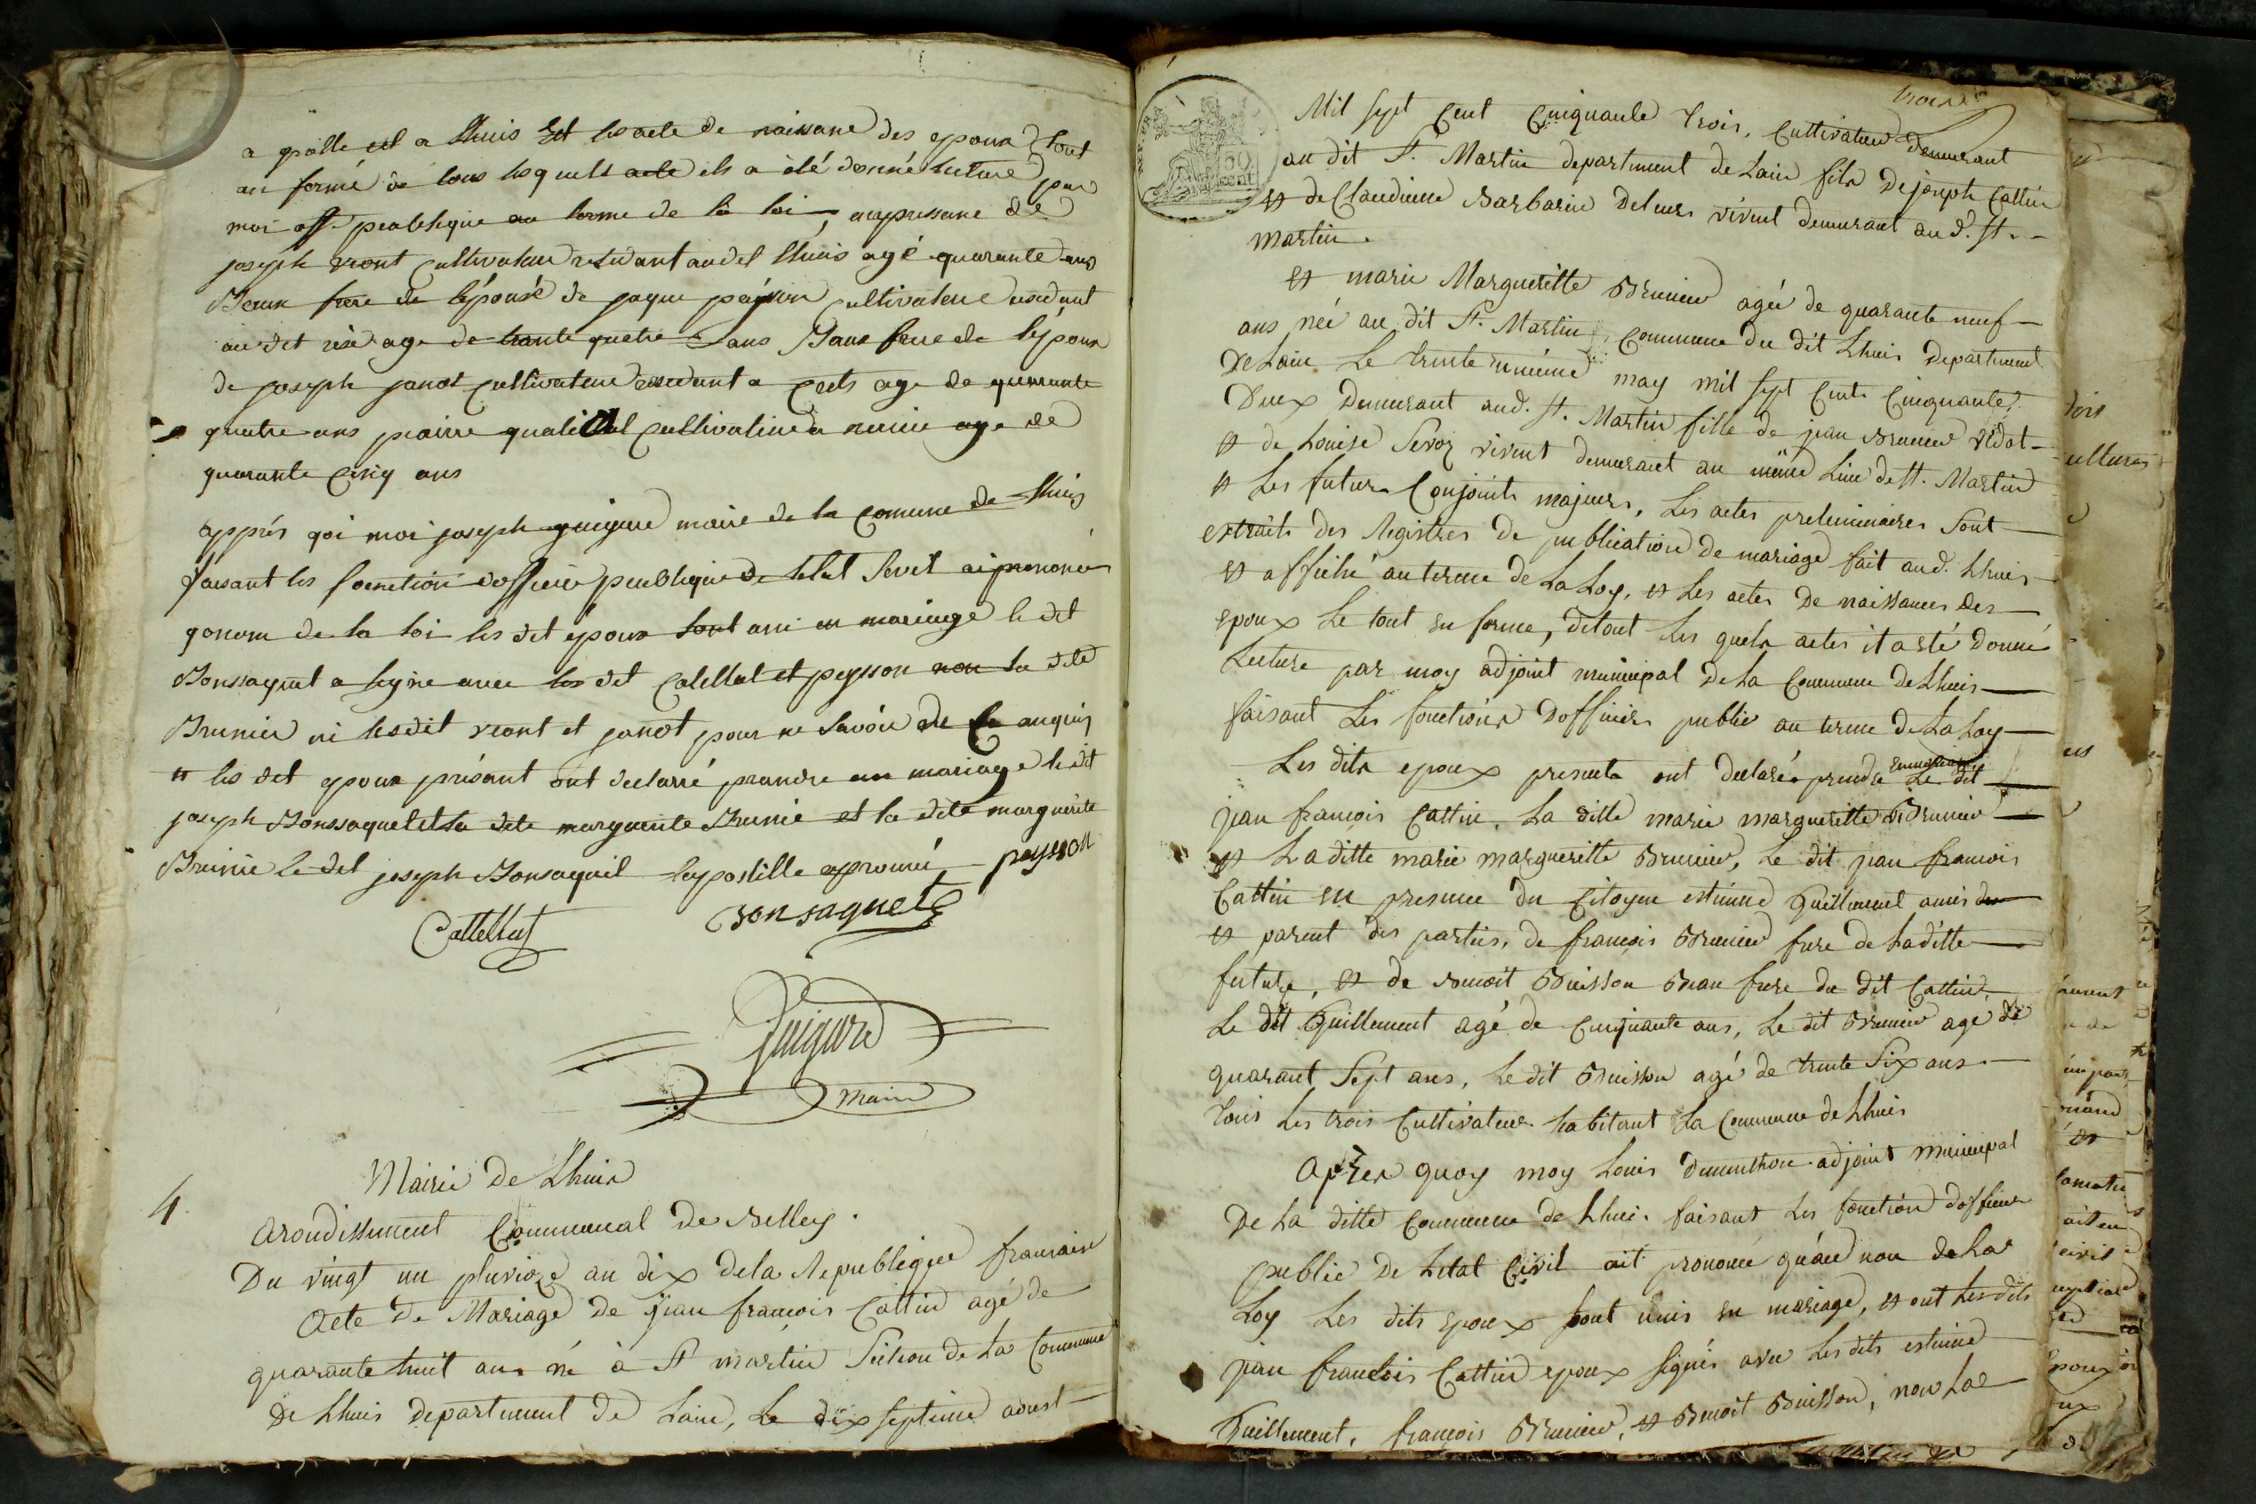 a grolle est a lhuis Et les acte de naissance des epoux tout
an forme de tous lesquels acte ils a été donné lecture par
moi off. peublique au terme de la loi, an presance de
joseph vront cultivateur residant audet lhuis agé quarante ans
Beau frere de l'épouse de jaque peysson cultivateur residant
au det agé de trante quatre ans Beau frere de lépoux
de joseph janot cultivateur residant a agé de quarante
quatre ans piaire cultivateur a agé de
quarante cinq ans
apprés qoi moi joseph guigard maire de la comune de lhuis
faisant les fonction dofficié peublique de letat sevil ai prononcé
qonom de la loi les det époux sont uni an mariage le det
Bonssaquet a signe avec les det Catellat et peysson non la dete
Brunier ni lesdit vront et janot pour ne savoir de ce anquis
et les det epoux présant ont declarré prandre an mariage le dit
joseph Bonssaquet et la dete marguerite Brunié et la dete marguerite
Brunié le det joseph Bonsaquet lapostille aprouvé peysson
Cattellat Bonsaquet
Guigard
maire
4.
Mairie de Lhuis
Arondissement Communal de Belley.
Du vingt un pluvioze an dix dela Republique francaise
Acte De Mariage de jean francois Cattin agé de
quarante huit ans né à St martin Section de la Commune
De Lhuis Departement de Lain, Le dix septieme aoust
trois
50 cent
Mil sept Cent Cinquante trois, Cultivateur Demeurant
au dit St. Martin departement de Lain fils De joseph Cattin
et de Claudine Barbarin Deleurs vivent demeurant au d. St.
Martin.
et marie Marguerite Brunier agée de quarante neuf
ans née au dit St. Martin, Commune du dit Lhuis Departement
De Lain Le trente unieme may mil sept Cent Cinquante
Deux Demeurant aud. St. Martin fille de jean Brunier vidot
et de Louise Sevoz vivent demeurant au même Lieu de St. Martin
et Les futurs Conjoints majeurs, Les actes preliminaires Sont
extraits des Registres De publication de mariage fait aud. Lhuis
et affiché au terme de La Loy, et Les actes De naissances des
epoux Le tout en forme, detout Les quels actes il a esté donné
Lecture par moy adjoint municipal De La Commune de Lhuis
faisant Les fonctions Dofficier public au terme de La Loy
Les dits epoux presents ont declaré prendre en mariage Le dit
jean francois Cattin, La ditte marie marguerite Brunier
et La ditte marie marguerite Brunier, Le dit jean francois
Cattin en presence du Citoyen estienne Guillement amis
et parent des parties, de francois Brunier frere de La ditte
future, et de Benoit Buisson Beau frere du dit Cattin,
Le dit Guillement agé de Cinquante ans, Le dit Brunier agé de
quarant Sept ans, Le dit Buisson agé de trente Six ans
tous Les trois Cultivateurs habitant La Commune de Lhuis
Apres quoy moy Louis adjoint municipal
De La ditte Commune de Lhuis faisant Les fonction d'officier
public De Letat Civil ait prononcé quau nom de La
Loy Les dits epoux sont unis en mariage, et ont Les dits
jean francois Cattin epoux signés avec Les dits estienne
Guillement, francois Brunier, et Benoit Buisson, non La